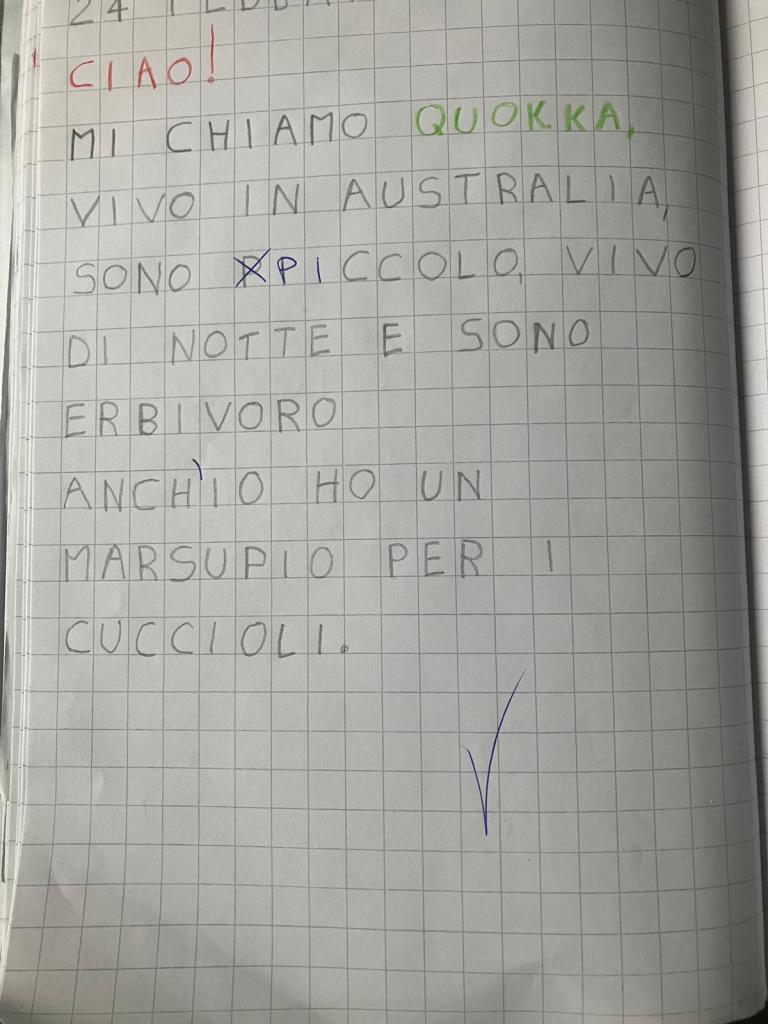 24
CIAO!
MI CHIAMO QUOKKA,
VIVO IN AUSTRALIA,
SONO PICCOLO, VIVO
DI NOTTE E SONO
ERBIVORO
ANCH'IO HO UN
MARSUPIO PER I
CUCCIOLI.